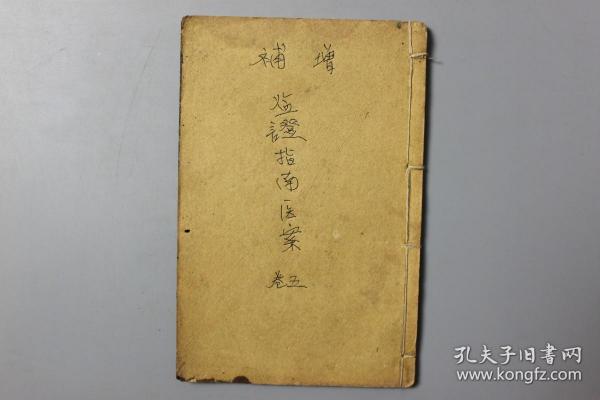 增補
證指南医案
卷五
孔夫子旧书网
www.kongfz.com